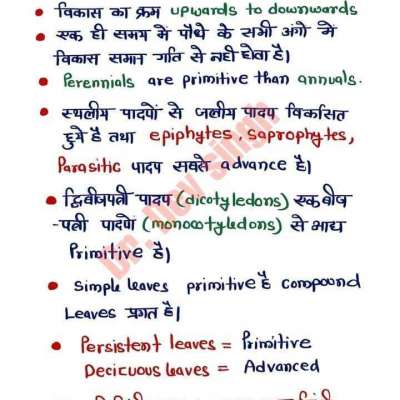 विकास का क्रम upwards to downwards
एक ही समय में पौधे के सभी अंगो में
विकास समान गति से नही होता है।
Perennials are primitive than annuals.
स्थलीय पादपों से जलीय पादप विकसित
हुये है तथा epiphytes, saprophytes,
Parasitic पादप सबसे advance है।
द्विबीजपत्री पादप (dicotyledons) एकबीज
-पत्री पादपो (monocotyledons) से आद्य
Primitive है।
Simple leaves primitive है compound
Leaves प्रगत है।
Persistent leaves = Primitive
Decicuous leaves = Advanced
Dr. Dev Singh